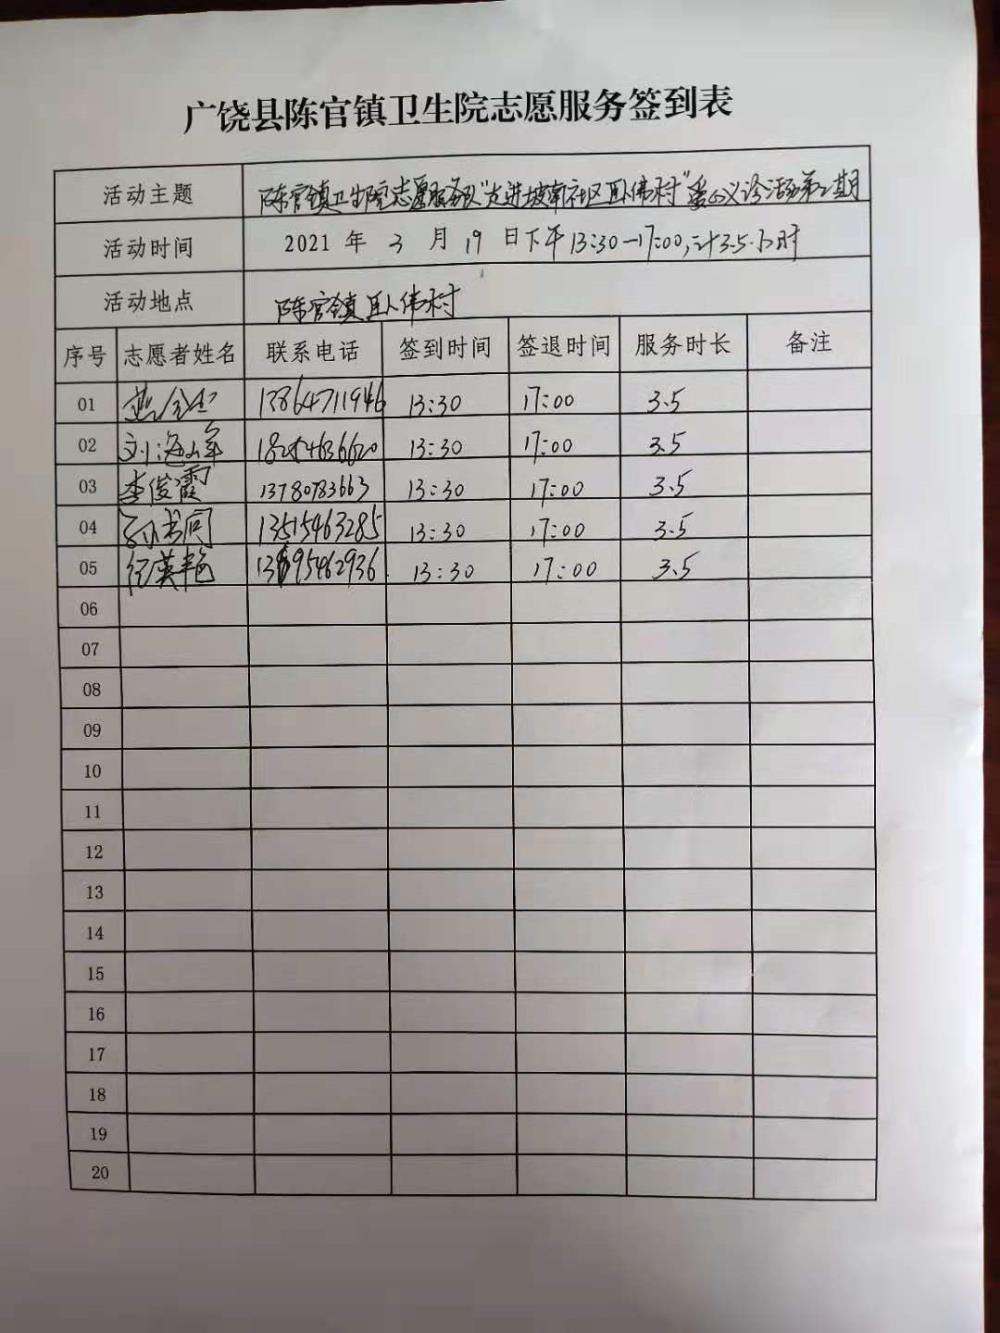 广饶县陈官镇卫生院志愿服务签到表
活动主题 陈官镇卫生院志愿服务队"走进坡南社区卧佛村"爱心义诊活动第二期
活动时间 2021 年 3 月 19 日下午13:30-17:00,计3.5小时
活动地点 陈官镇卧佛村
序号 志愿者姓名 联系电话 签到时间 签退时间 服务时长 备注
01 13864711946 13:30 17:00 3.5
02 刘海军 13:30 17:00 3.5
03 李俊霞 13780783663 13:30 17:00 3.5
04 孙书同 13515463285 13:30 17:00 3.5
05 13:30 17:00 3.5
06
07
08
09
10
11
12
13
14
15
16
17
18
19
20